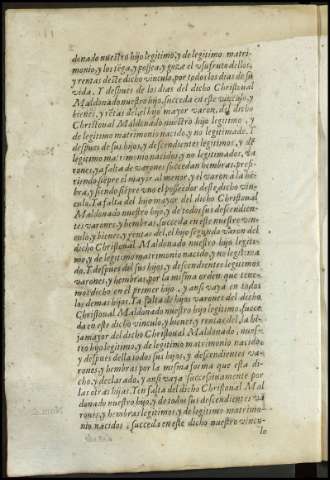 denado nuestro hijo legitimo, y de legitimo matri-
monio, y los tẽga, y possea, y goze el vsufruto dellos,
y rentas deste dicho vinculo, por todos los dias de su
vida. Y despues de los dias del dicho Christoual
Maldonado nuestro hijo, succeda en este vinculo, y
bienes, y rẽtas del el hijo mayor varon, del dicho
Christoual Maldonado nuestro hijo legitimo, y
de legitimo matrimonio nacido, y no legitimado. Y
despues de sus hijos, y descendientes legitimos, y de
legitimo matrimonio nacidos, y no legitimados, va
rones, y a falta de varones succedan hembras, prefi-
riendo siẽpre el mayor al menor, y el varon a la hẽ-
bra, y siendo siẽpre vno el possedor deste dicho vin-
culo. Y a falta del hijo mayor del dicho Christoual
Maldonado nuestro hijo, y de todos sus descendien-
tes varones, y hembras, succeda en este nuestro vin-
culo, y bienes, y rentas del, el hijo segundo varon del
dicho Christoual Maldonado nuestro hijo legiti-
mo, y de legitimo matrimonio nacido, y no legitima
do. Y despues del sus hijos, y descendientes legitimos
varones, y hembras, por la misma orden que tene-
mos dicho en el primer hijo, y ansi vaya en todos
los demas hijos. Y a falta de hijos varones del dicho
Christoual Maldonado nuestro hijo legitimo, succe
da en este dicho vinculo, y bienes, y rentas del, la hi-
ja mayor del dicho Christoual Maldonado, nues-
tro hijo legitimo, y de legitimo matrimonio nacido
y despues della todos sus hijos, y descendientes va-
rones, y hembras por la misma forma que esta di-
cho, y declarado, y ansi vaya succesiuamente por
las otras hijas. Y en falta del dicho Christoual Mal
donado nuestro hijo, y de todos sus descendientes va
rones, y hembras legitimos, y de legitimo matrimo-
nio nacidos, succeda en este dicho nuestro vincu-
lo